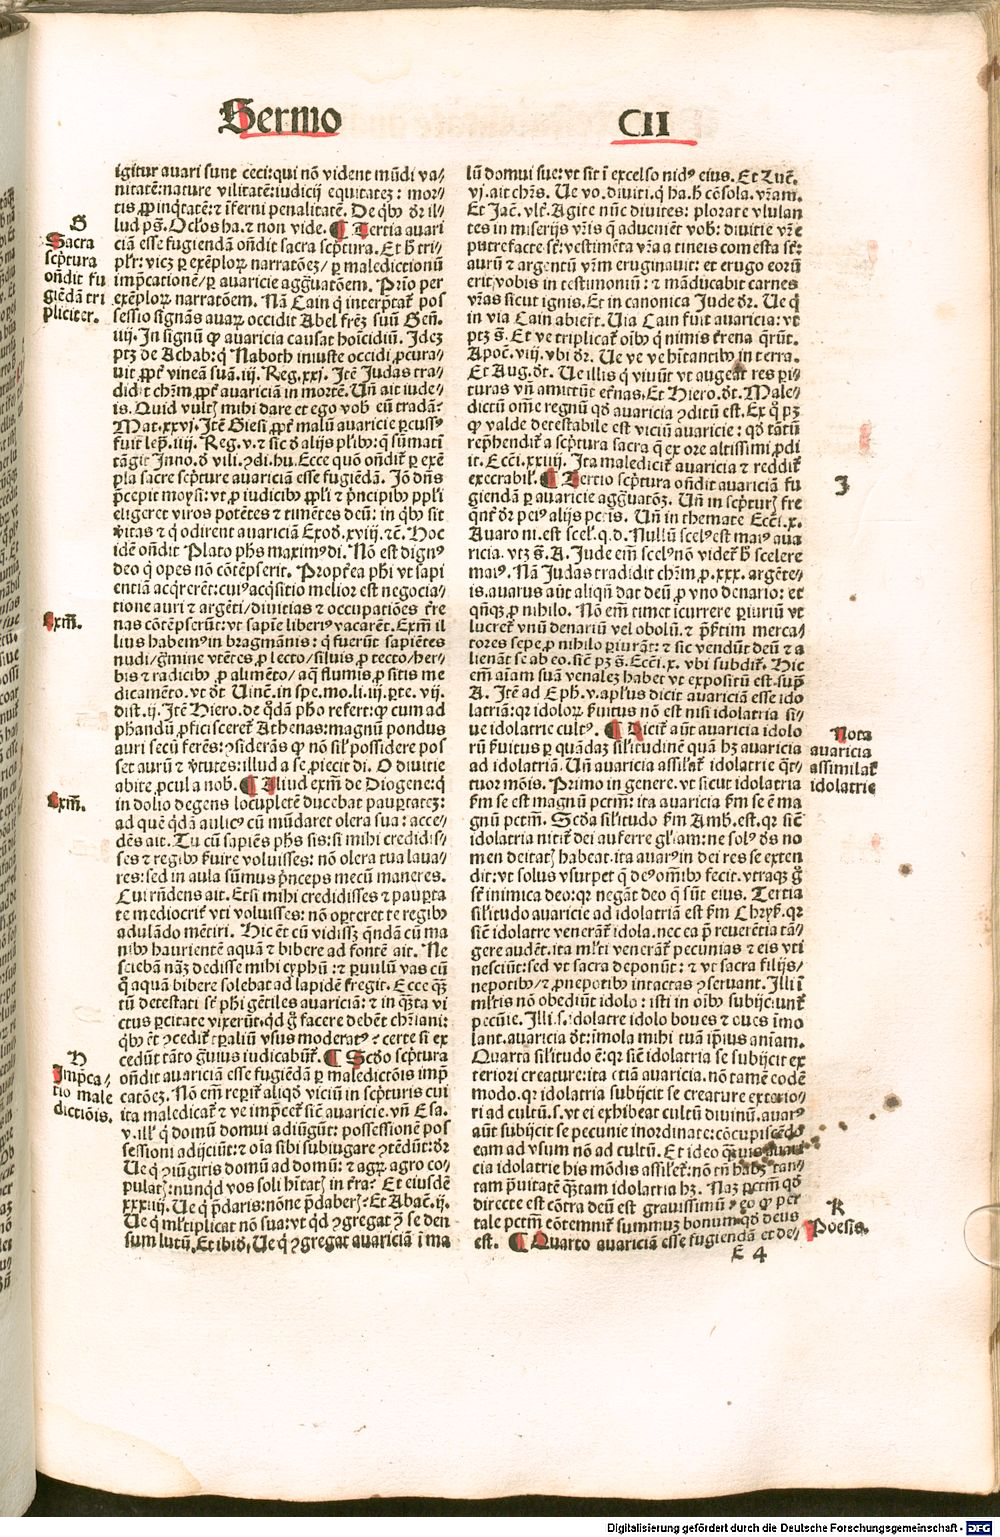 Sermo
CII
igitur auari sunt ceci: qui nõ vident mũdi va⸗
nitatẽ: nature vilitatẽ: iudicij equitatez: mor⸗
tis ꝓpinq̃tatẽ: ⁊ ĩferni penalitatẽ. De q̈bꝰ dr̃ il⸗
lud ps̃. Ocĺos ha. ⁊ non vide. ¶ Tertia auari
ciã esse fugiendã oñdit sacra scp̃tura. Et h̃ tri⸗
pĺr: vicz ꝑ exẽploꝝ narratõez/ ꝑ maledictionũ
imp̃cationẽ/ ꝑ auaricie agg̃uatõem. Prĩo per
exẽploꝝ narratõem. Nã Cain q̇ interp̃tat̃ pos
sessio signãs auaꝝ occidit Abel frẽz suũ Geñ.
iiij. Jn signũ ꝙ auaricia causat hoĩcidiũ. Jdez
ptz de Achab: q̇ Naboth iniuste occidi ꝓcura⸗
uit ꝓpt̃ vineã suã. iij. Reg. xxj. Jtẽ Judas tra⸗
didit chr̃m ꝓpt̃ auariciã in mortẽ. Uñ ait iude⸗
is. Quid vultꝭ mihi dare et ego vob̃ eũ tradã?
Mat. xxvj. Jtẽ Giesi ꝓpt̃ malũ auaricie ꝑcussꝰ
fuit lep̃. iiij. Reg. v. ⁊ sic ð alijs pĺibꝰ: q̇ sũmatĩ
tãgit Jnno. ð vili. ꝯdi. hu. Ecce quõ oñdit̃ ꝑ exẽ
pla sacre scp̃ture auariciã esse fugiẽdã. Jõ dñs
p̃cepit moysi: vt ꝓ iudicibꝰ ppĺi ⁊ p̃ncipibꝰ ppĺi
eligeret viros potẽtes ⁊ timẽtes deũ: in q̈bꝰ sit
v̾itas ⁊ q̇ odirent auariciã Exod̃. xviij. ⁊c̃. Hoc
idẽ oñdit Plato ph̃s maximꝰ di. Nõ est dignꝰ
deo q̇ opes nõ cõtẽpserit. Propt̃ea ph̃i vt sapi
entiã acq̃rerẽt: cuiꝰ acq̃sitio melior est negocia⸗
tione auri ⁊ argẽti/ diuitias ⁊ occupatiões t̃re
nas cõtẽpserũt: vt sapiẽ liberiꝰ vacarẽt. Exm̃ il
lius habemꝰ in bragmãnis: q̇ fuerũt sapiẽtes
nudi/ g̃mine vtẽtes ꝓ lecto/ siluis ꝓ tecto/ her⸗
bis ⁊ radicibꝰ ꝓ alimẽto/ aq̃ flumĩs ꝓ sitis me
dicamẽto. vt ðt Uinẽ. in spe. mo. li. iij. ꝑte. vij.
dist. ij. Jtẽ Hiero. de q̇dã ph̃o refert: ꝙ cum ad
phandũ ꝓficisceret̃ Athenas: magnũ pondus
auri secũ ferẽs: ꝯsiderãs ꝙ nõ siĺ possidere pos
set aurũ ⁊ v̾tutes: illud a se ꝓiecit di. O diuitie
abite ꝓcul a nob̃. ¶ Aliud exm̃ de Diogene: q̇
in dolio degens locupletẽ ducebat pauꝑtatez:
ad quẽ q̇dã aulicꝰ cũ mũdaret olera sua: acce⸗
dẽs ait. Tu cũ sapiẽs ph̃s sis: si mihi credidis⸗
ses ⁊ regibꝰ s̃uire voluisses: nõ olera tua laua⸗
res: sed in aula sũmus p̃nceps mecũ maneres.
Cui rñdens ait. Etsi mihi credidisses ⁊ pauꝑta
te mediocrit̃ vti voluisses: nõ oꝑteret te regibꝰ
adulãdo mẽtiri. Hic ẽt cũ vidissz q̃ndã cũ ma
nibꝰ haurientẽ aquã ⁊ bibere ad fontẽ ait. Ne
sciebã nãz dedisse mihi cyphũ: ⁊ ꝑuulũ vas cũ
q̊ aquã bibere solebat ad lapidẽ fregit. Ecce qz̃
tũ detestati st̃ ph̃i gẽtiles auariciã: ⁊ in qz̃ta vi
ctus ꝑcitate vixerũt. qd g̊ facere debẽt ch̃riani:
q̈bꝰ ẽt ꝯcedit̃ tꝑaliũ vsus moderatꝰ? certe si ex
cedũt tãto g̃uius iudicabũt̃. ¶ Scðo scp̃tura
oñdit auariciã esse fugiẽdã ꝑ maledictõis imp̃
catõez. Nõ em̃ reꝑit̃ aliqd̃ viciũ in scp̃turis cui
ita maledicat̃ ⁊ ve imp̃cet̃ sic̃ auaricie. vñ Esa.
v. iĺlꝰ q̇ domũ domui adiũgũt: possessionẽ pos
sessioni adijciũt: ⁊ oĩa sibi subiugare ꝯtẽdũt: dr̃
Ue q̇ ꝯiũgitis domũ ad domũ: ⁊ agꝝ agro co⸗
pulatꝭ: nunqd vos soli hĩtatꝭ in t̃ra? Et eiusdẽ
xxxiij. Ue q̇ p̃daris: nõne p̃daberꝭ? Et Abac̃. ij.
Ue q̇ mĺtiplicat nõ sua: vt qd ꝯgregat ꝯ̃ se den
sum lutũ. Et ibid̃. Ue q̇ ꝯgregat auariciã ĩ ma
G
Sacra
scp̃tura
oñdit fu
giẽdã tri
pliciter.
Exm̃.
Exm̃.
H
Jmp̃ca⸗
tio male
dictiõis.
lũ domui sue: vt sit ĩ excelso nidꝰ eius. Et Luc̃.
vj. ait chr̃s. Ue vo. diuiti. q̇ ha. h̃ cõsola. vr̃am.
Et Jac̃. vlt̃. Agite nũc diuites: plorate vlulan
tes in miserijs vr̃is q̃ adueniẽt vob̃: diuitie vr̃e
putrefacte st̃: vestimẽta vr̃a a tineis comesta st̃:
aurũ ⁊ argentũ vr̃m eruginauit: et erugo eorũ
erit vobis in testimoniũ: ⁊ mãducabit carnes
vr̃as sicut ignis. Et in canonica Jude dr̃. Ue q̇
in via Cain abier̃t. Uia Cain fuit auaricia: vt
ptz s̃. Et ve triplicat̃ oĩbꝰ q̇ nimis t̃rena q̃rũt.
Apoc̃. viij. vbi dr̃. Ue ve ve hĩtantibꝰ in terra.
Et Aug. ðt. Ue illis q̇ viuũt vt augeãt res ꝑi⸗
turas vñ amittũt et̃nas. Et Hiero. ðt. Male⸗
dictũ om̃e regnũ qd̃ auaricia ꝯditũ est. Ex q̊ pz
ꝙ valde detestabile est viciũ auaricie: qd̃ tãtũ
rep̃hendit̃ a scp̃tura sacra q̃ ex ore altissimi ꝓdi
it. Ecc̃i. xxiiij. Jta maledicit̃ auaricia ⁊ reddit̃
execrabiĺ. ¶ Tertio scp̃tura oñdit auariciã fu
giendã ꝑ auaricie agg̃uatõz. Uñ in scp̃turꝭ fre
q̃nt̃ dr̃ peiꝰ alijs pctĩs. Uñ in themate Ecc̃i. x.
Auaro ni. est sceĺ. q. d. Nullũ scelꝰ est maiꝰ aua
ricia. vtz s̃. A. Jude em̃ scelꝰ nõ videt̃ h̃ scelere
maiꝰ. Nã Judas tradidit chr̃m ꝓ. xxx. argẽte⸗
is. auarus aũt aliqñ dat deũ ꝓ vno denario: et
qñqꝫ ꝓ nihilo. Nõ em̃ timet ĩcurrere ꝑiuriũ vt
lucret̃ vnũ denariũ vel obolũ. ⁊ p̃s̃tim merca⸗
tores sepe ꝓ nihilo ꝑiurãt: ⁊ sic vendũt deũ ⁊ a
lienãt se ab eo. sic̃ pz s̃. Ecc̃i. x. vbi subdit̃. Hic
em̃ aĩam suã venalez habet vt expositũ est. supͣ
A. Jtẽ ad Eph. v. apĺus dicit auariciã esse ido
latriã: qꝛ idoloꝝ s̃uitus nõ est nisi idolatria si⸗
ue idolatrie cultꝰ. ¶ Dicit̃ aũt auaricia idolo
rũ s̃uitus ꝑ quãdaz siĺitudinẽ quã hz auaricia
ad idolatriã. Uñ auaricia assiĺat̃ idolatrie q̃t⸗
tuor mõis. Primo in genere. vt sicut idolatria
s̃m se est magnũ pctm̃: ita auaricia s̃m se ẽ ma
gnũ pctm̃. Scða siĺitudo s̃m Amb. est. qꝛ sic̃
idolatria nitit̃ dei auferre gĺiam: ne solꝰ ds̃ no
men deitatꝭ habeat. ita auarꝰ in dei res se exten
dit: vt solus vsurpet q̃ deꝰ oĩbꝰ fecit. vtraqꝫ g̊
st̃ inimica deo: qꝛ negãt deo q̃ sũt eius. Tertia
siĺitudo auaricie ad idolatriã est s̃m Chrys̃. qꝛ
sic̃ idolatre venerãt̃ idola. nec ea p̃ reuerẽtia tã⸗
gere audẽt. ita mĺti venerãt̃ pecunias ⁊ eis vti
nesciũt: sed vt sacra deponũt: ⁊ vt sacra filijs/
nepotibꝰ/ ⁊ ꝓnepotibꝰ intactas ꝯseruant. Jlli ĩ
mĺtis nõ obediũt idolo: isti in oĩbꝰ subijciunt̃
pecunie. Jlli. s. idolatre idolo boues ⁊ oues ĩmo
lant. auaricia ðt: ĩmola mihi tuã ip̃ius aniam.
Quarta siĺitudo ẽ: qꝛ sic̃ idolatria se subijcit ex
teriori creature: ita etiã auaricia. nõ tamẽ eodẽ
modo. qꝛ idolatria subijcit se creature exterio⸗
ri ad cultũ. s. vt ei exhibeat cultũ diuinũ. auarꝰ
aũt subijcit se pecunie inordinate: cõcupiscẽdo
eam ad vsum nõ ad cultũ. Et ideo q̃uis auari
cia idolatrie his mõdis assiĺet̃: nõ tñ habz̃ tan⸗
tam p̃uitatẽ qz̃tam idolatria hz. Naz pctm̃ qd̃
directe est cõtra deũ est grauissimũ ⁊ eo ꝙ per
tale pctm̃ cõtemnit̃ summuz bonum qd̃ deus
est. ¶ Quarto auariciã esse fugiendã et de⸗
J
Nota
auaricia
assimilat̃
idolatrie
K
Poesis.
E 4
Digitalisierung gefördert durch die Deutsche Forschungsgemeinschaft - DFG